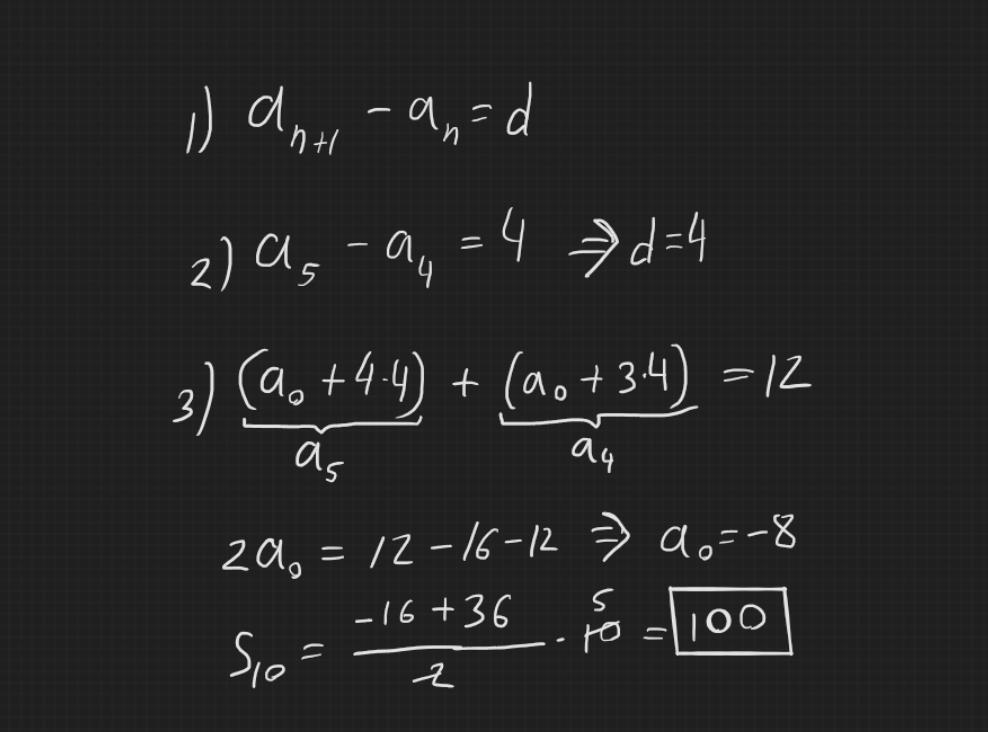 1) a_{n+1} - a_n = d
2) a_5 - a_4 = 4 ⇒ d=4
3) (a_0 + 4·4) + (a_0 + 3·4) = 12
a_5 a_4
2a_0 = 12 - 16 - 12 ⇒ a_0 = -8
5
S_10 = (-16 + 36)/2 · 10 = 100